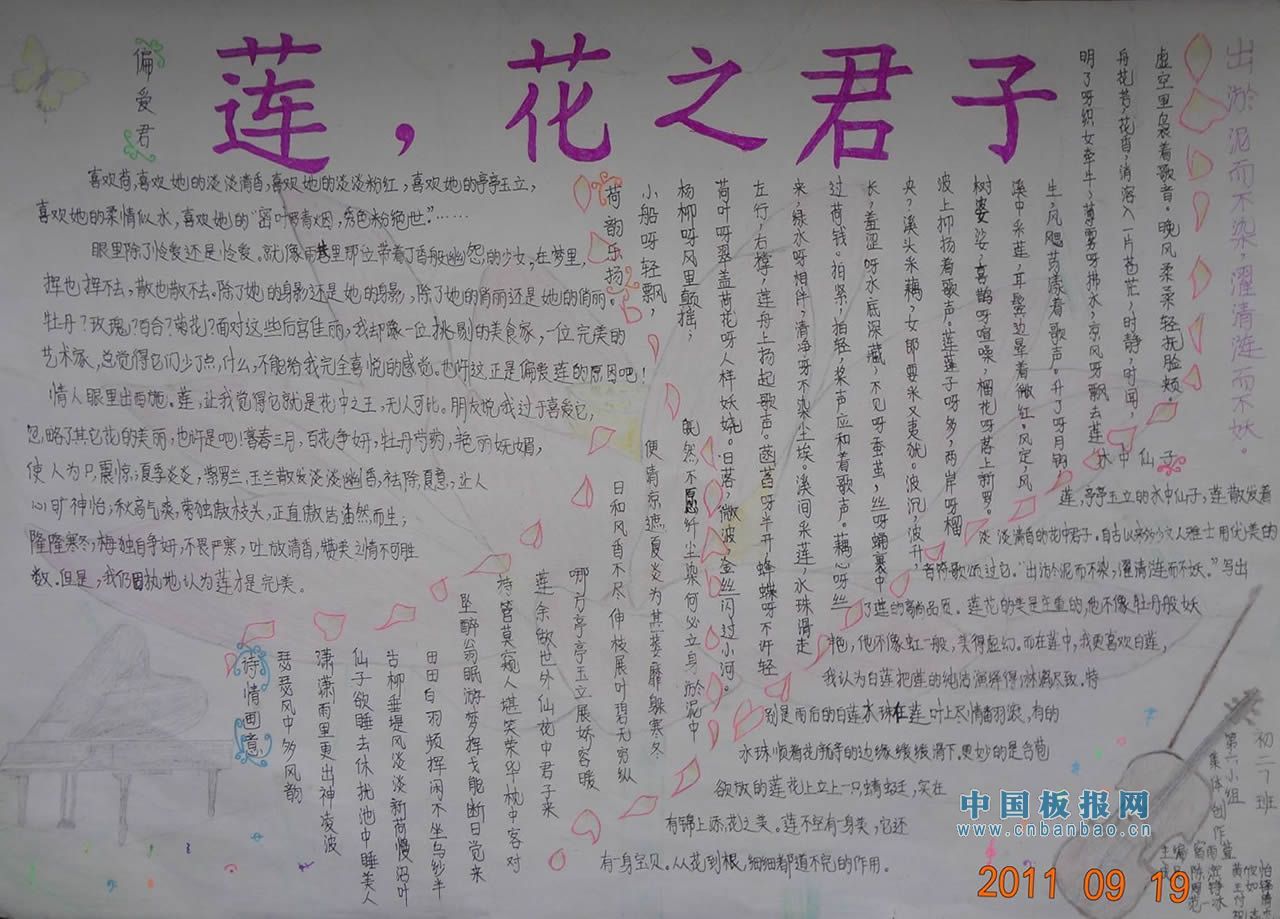 莲，花之君子
偏爱君
喜欢荷,喜欢她的淡淡清香,喜欢她的淡淡粉红,喜欢她的亭亭玉立,
喜欢她的柔情似水,喜欢她的
眼里除了怜爱还是怜爱。就像雨巷里那位带着丁香般幽怨的少女,在梦里,
挥也挥不去,散也散不去。除了她的身影还是她的身影,除了她的俏丽还是她的俏丽。
牡丹?玫瑰?百合?菊花?面对这些后宫佳丽,我却像一位挑剔的美食家,一位完美的
艺术家,总觉得它们少了点,什么,不能给我完全喜悦的感觉。也许这正是偏爱莲的原因吧!
情人眼里出西施。莲,让我觉得它就是花中之王,无人可比。朋友说,我过于喜爱它,
忽略了其它花的美丽,也许是吧!暮春三月,百花争妍,牡丹芍药,艳丽妩媚,
使人为只震惊;夏季炎炎,紫罗兰,玉兰散发淡淡幽香,祛除夏意,让人
心旷神怡;秋高气爽,菊独傲枝头,正直傲吉油然而生;
隆隆寒冬,梅独自争妍,不畏严寒,吐放清香,赞美之情不可胜
数。但是,我仍固执地认为莲才是完美。
出淤泥而不染，濯清涟而不妖。
虚空里袅着歌音。晚风柔柔轻抚脸颊。
舟花若,花香,消溶入一片苍茫,时静,时闻,
明了呀织女牵牛,薄雾呀拂水,凉风呀飘去莲
生,风飔荡漾着歌声。升了呀月钩,
溪中采莲,耳鬓边晕着微红。风定,风
树婆娑,喜鹊呀喧噪,榴花呀落上新罗。
波上抑扬着歌声。莲莲子呀多,两岸呀榴
央,溪头采藕,女郎要采又夷犹。波沉,波升,
长,羞涩呀水底深藏,不见呀蚕茧,丝呀蛹裹中
过荷钱。拍紧,拍轻,桨声应和着歌声。藕心呀丝
来,绿水呀相伴,清净呀不染尘埃。溪间采莲,水珠滑走
左行,右撑,莲舟上扬起歌声。菡萏呀半开,蜂蝶呀不许轻
荷叶呀翠盖荷花呀人样妖娆。日落,微波,金丝闪过小河。
杨柳呀风里颠摇,
小船呀轻飘,
荷韵乐扬
既然不愿纤尘染何必立身淤泥中
便请京遮夏炎为其萎靡躲寒冬
日和风香不尽伸枝展叶碧无穷纵
哪方亭亭玉立展娇容暖
莲余敏世外仙花中君子来
待管莫窥人堪笑荣华枕中客对
坠醉翁眠游梦挥戈能断日觉来
田田白羽频挥闲不坐乌纱半
古柳垂堤风淡淡新荷慢沼叶
仙子欲睡去休扰池中睡美人
潇潇雨里更出神凌波
瑟瑟风中多风韵
诗情画意
水中仙子
莲,亭亭玉立的水中仙子,莲散发着
淡淡清香的花中君子。自古以来多少文人雅士用优美的
音符歌颂过它。“出淤泥而不染,濯清涟而不妖。”写出
了莲的高尚品质。莲花的美是庄重的,他不像牡丹般妖
艳,他不像虹一般,美得虚幻。而在莲中,我更喜欢白莲,
我认为白莲把莲的纯洁演绎得淋漓尽致。特
别是雨后的白莲水珠在莲叶上尽情翻滚,有的
水珠顺着花瓣的边缘缓缓滑下更妙的是含苞
欲放的莲花上立上一只蜻蜓,实在
有锦上添花之美。莲不空有一身美,它还
有一身宝贝。从花到根,细细都道不完的作用。
初二7班
第六小组
集体创作
主编
中国板报网
www.cnbanbao.cn
2011 09 19